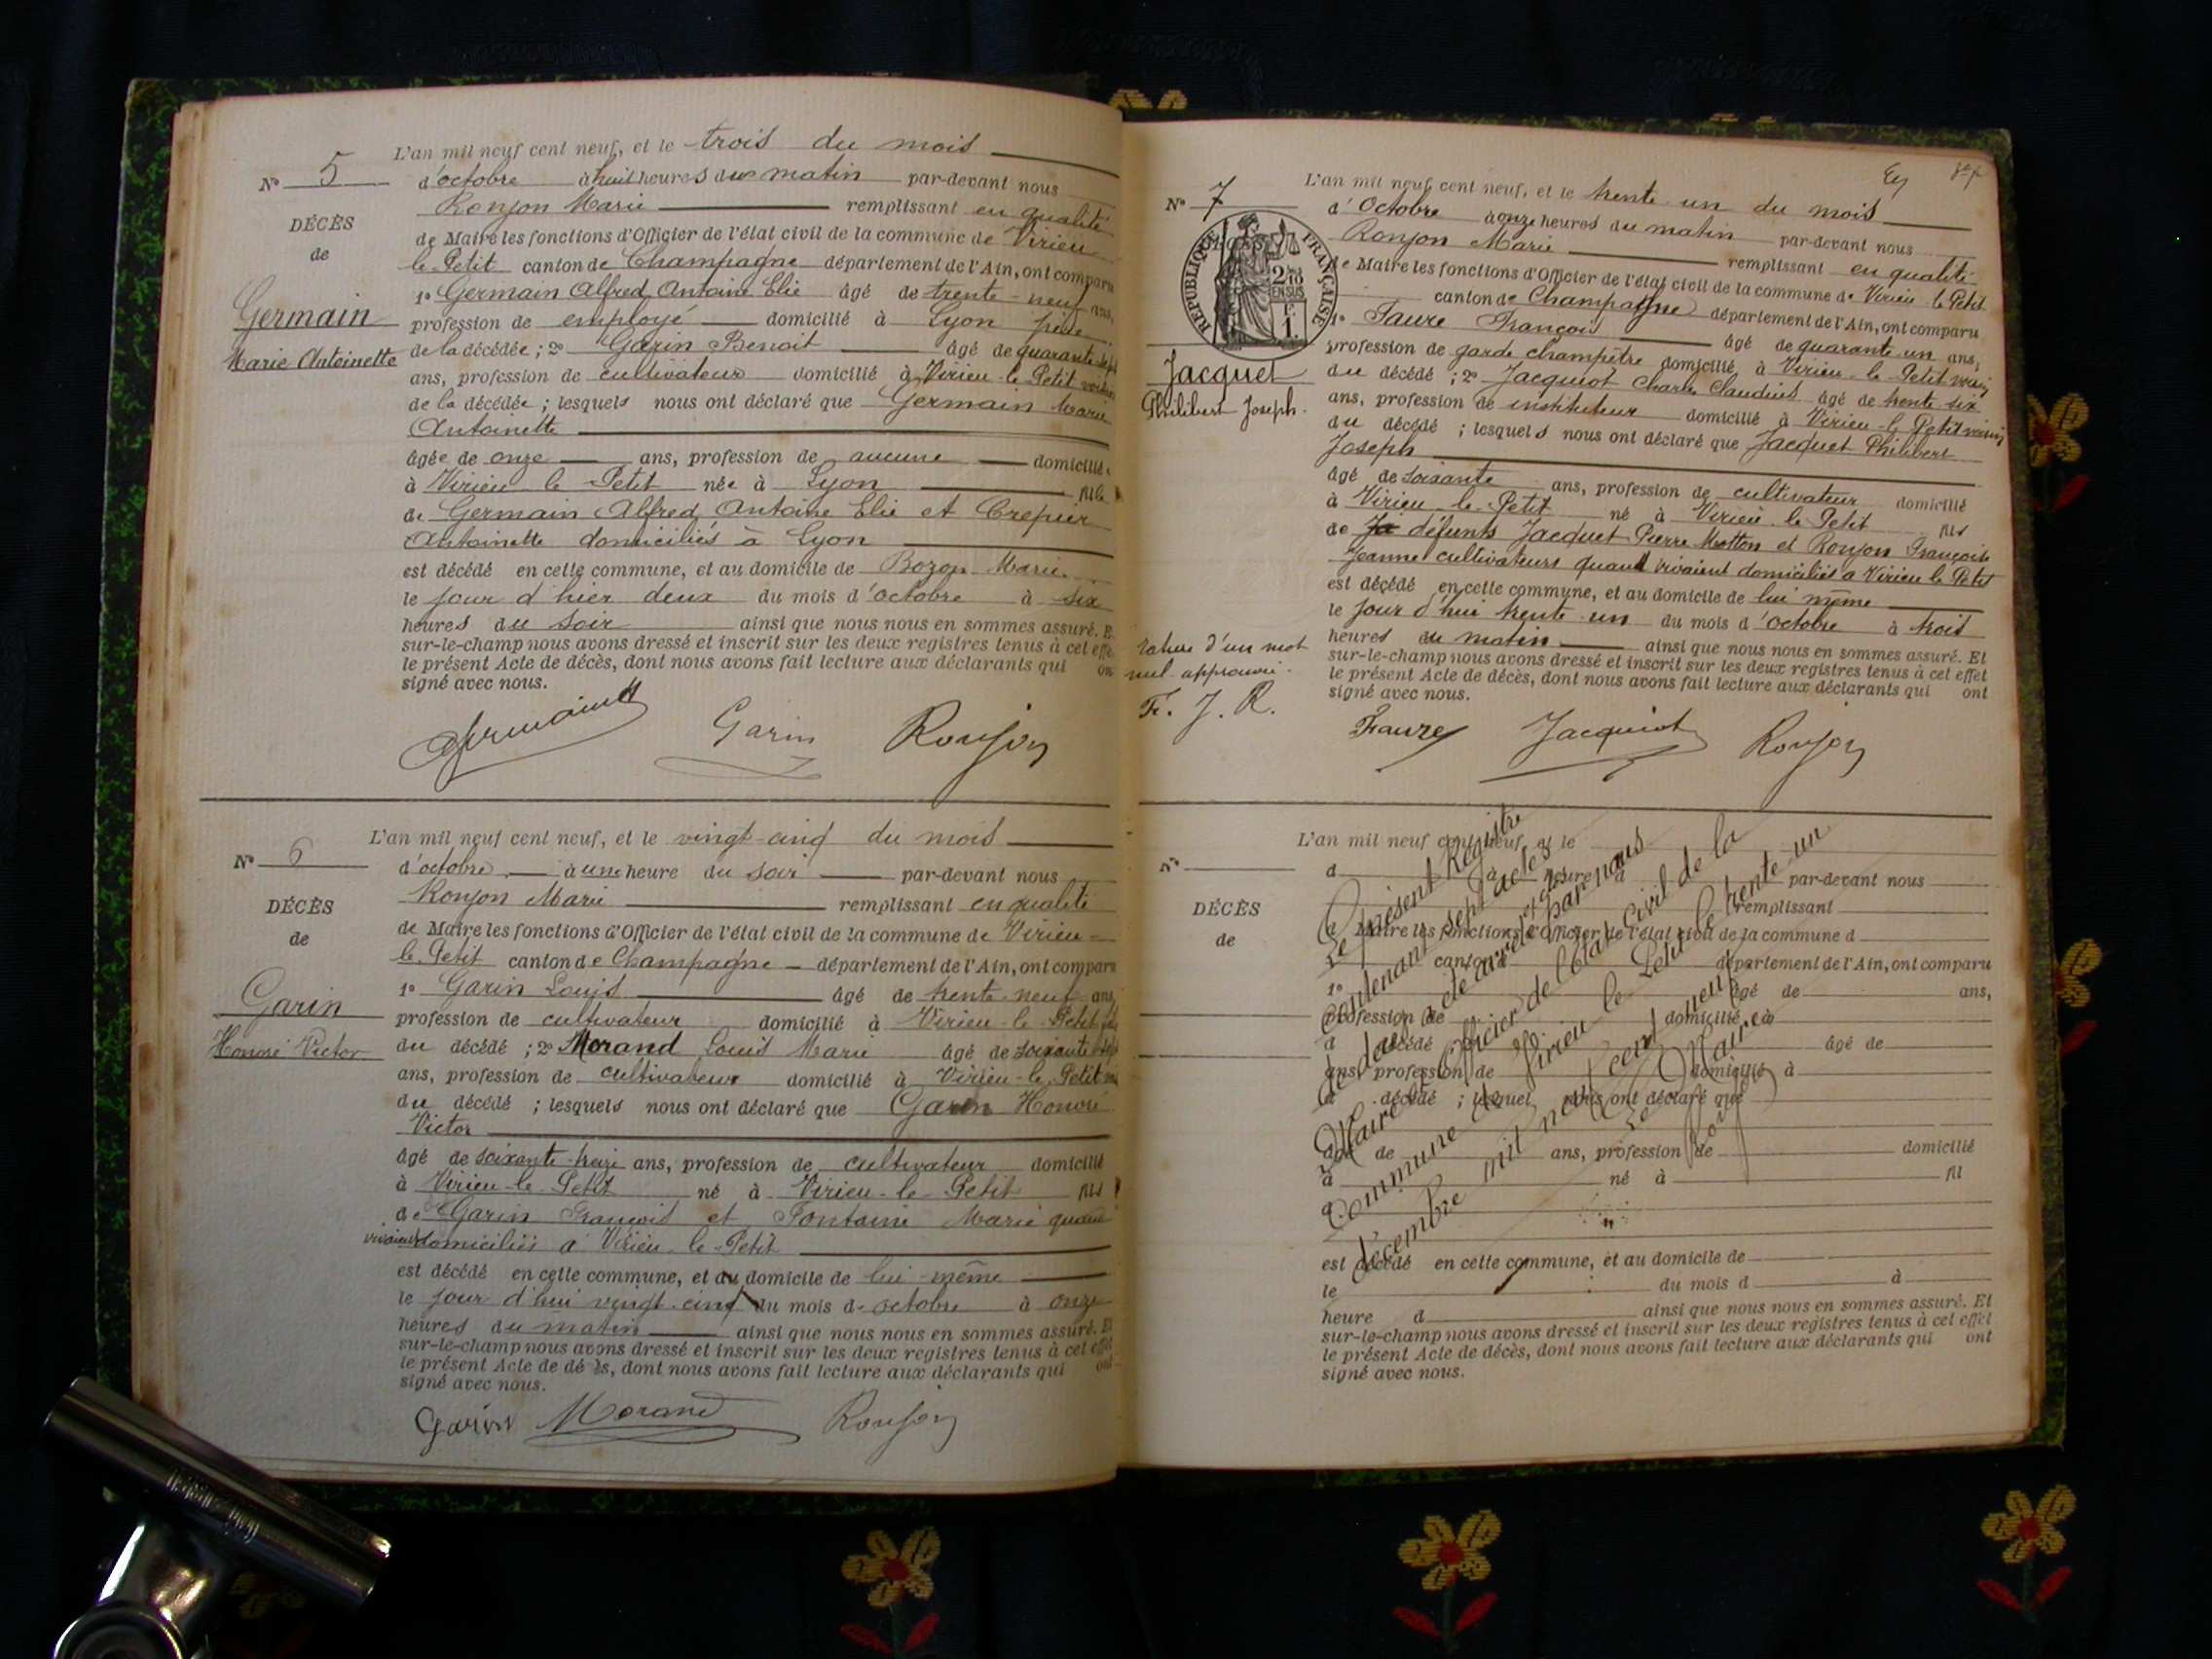 L'an mil neuf cent neuf, et le trois du mois
N° 5
d'octobre à huit heures du matin par-devant nous
Ronjon Marie remplissant en qualité
DÉCÈS
de Maire les fonctions d'Officier de l'état civil de la commune de Virieu
de
le-Petit canton de Champagne département de l'Ain, ont comparu
1° Germain Alfred Antoine Elie âgé de trente-neuf ans,
Germain
profession de employé domicilié à Lyon père
Marie Antoinette
de la décédée ; 2° Garin Benoit âgé de quarante
ans, profession de cultivateur domicilié à Virieu-le-Petit voisin
de la décédée ; lesquels nous ont déclaré que Germain Marie
Antoinette
âgée de onze ans, profession de aucune domiciliée
à Virieu le Petit née à Lyon fille
de Germain Alfred Antoine Elie et Crepier
Antoinette domiciliés à Lyon
est décédé en cette commune, et au domicile de Bozon Marie
le jour d'hier deux du mois d'octobre à six
heures du soir ainsi que nous nous en sommes assuré. E
sur-le-champ nous avons dressé et inscrit sur les deux registres tenus à cet effe
le présent Acte de décès, dont nous avons fait lecture aux déclarants qui on
signé avec nous.
Germain Garin Ronjon
L'an mil neuf cent neuf, et le vingt-cinq du mois
N° 6
d'octobre à une heure du soir par-devant nous
Ronjon Marie remplissant en qualité
DÉCÈS
de Maire les fonctions d'Officier de l'état civil de la commune de Virieu-
de
le-Petit canton de Champagne département de l'Ain, ont comparu
1° Garin Louis âgé de trente-neuf ans,
Garin
profession de cultivateur domicilié à Virieu-le-Petit fils
Honoré Victor
du décédé ; 2° Morand Louis Marie âgé de soixante
ans, profession de cultivateur domicilié à Virieu-le-Petit
du décédé ; lesquels nous ont déclaré que Garin Honoré
Victor
âgé de soixante-treize ans, profession de cultivateur domicilié
à Virieu-le-Petit né à Virieu-le-Petit fils
de Garin François et Fontaine Marie quand
vivaient domiciliés à Virieu-le-Petit
est décédé en cette commune, et au domicile de lui-même
le jour d'hui vingt-cinq du mois d'octobre à onze
heures du matin ainsi que nous nous en sommes assuré. Et
sur-le-champ nous avons dressé et inscrit sur les deux registres tenus à cet effet
le présent Acte de décès, dont nous avons fait lecture aux déclarants qui ont
signé avec nous.
Garin Morand Ronjon
L'an mil neuf cent neuf, et le trente-un du mois
N° 7
d'Octobre à onze heures du matin par-devant nous
Ronjon Marie remplissant en qualité
de Maire les fonctions d'Officier de l'état civil de la commune de Virieu-le-Petit
canton de Champagne département de l'Ain, ont comparu
RÉPUBLIQUE FRANÇAISE
2/10 EN SUS
F. 1.
1° Faure François âgé de quarante-un ans,
profession de garde champêtre domicilié à Virieu-le-Petit voisin
Jacquet
du décédé ; 2° Jacquiot Charles Claudius âgé de trente-six
Philibert Joseph.
ans, profession de instituteur domicilié à Virieu-le-Petit voisin
du décédé ; lesquels nous ont déclaré que Jacquet Philibert
Joseph
âgé de soixante ans, profession de cultivateur domicilié
à Virieu-le-Petit né à Virieu-le-Petit fils
de Ja défunts Jacquet Pierre Motton et Ronjon Françoise
Jeanne cultivateurs quand vivaient domiciliés à Virieu le Petit
est décédé en cette commune, et au domicile de lui même
le jour d'hui trente-un du mois d'octobre à trois
heures du matin ainsi que nous nous en sommes assuré. Et
rature d'un mot
nul approuvée.
F. J. R.
sur-le-champ nous avons dressé et inscrit sur les deux registres tenus à cet effet
le présent Acte de décès, dont nous avons fait lecture aux déclarants qui ont
signé avec nous.
Faure Jacquiot Ronjon
L'an mil neuf cent neuf, et le
N°
d à heure d par-devant nous
remplissant
DÉCÈS
d Maire les fonctions d'Officier de l'état civil de la commune d
de
canton d département de l'Ain, ont comparu
1° âgé de ans,
profession de domicilié à
d décédé ; 2° âgé de
ans, profession de domicilié à
d décédé ; lesquel nous ont déclaré que
âgé de ans, profession de domicilié
à né à fil
d
est décédé en cette commune, et au domicile de
le du mois d à
heure d ainsi que nous nous en sommes assuré. Et
sur-le-champ nous avons dressé et inscrit sur les deux registres tenus à cet effet
le présent Acte de décès, dont nous avons fait lecture aux déclarants qui ont
signé avec nous.
Le présent Registre
contenant sept actes
de décès a été arrêté et clos par nous
Maire et Officier de l'Etat civil de la
Commune de Virieu le Petit le trente-un
décembre mil neuf cent neuf
Le Maire
Ronjon